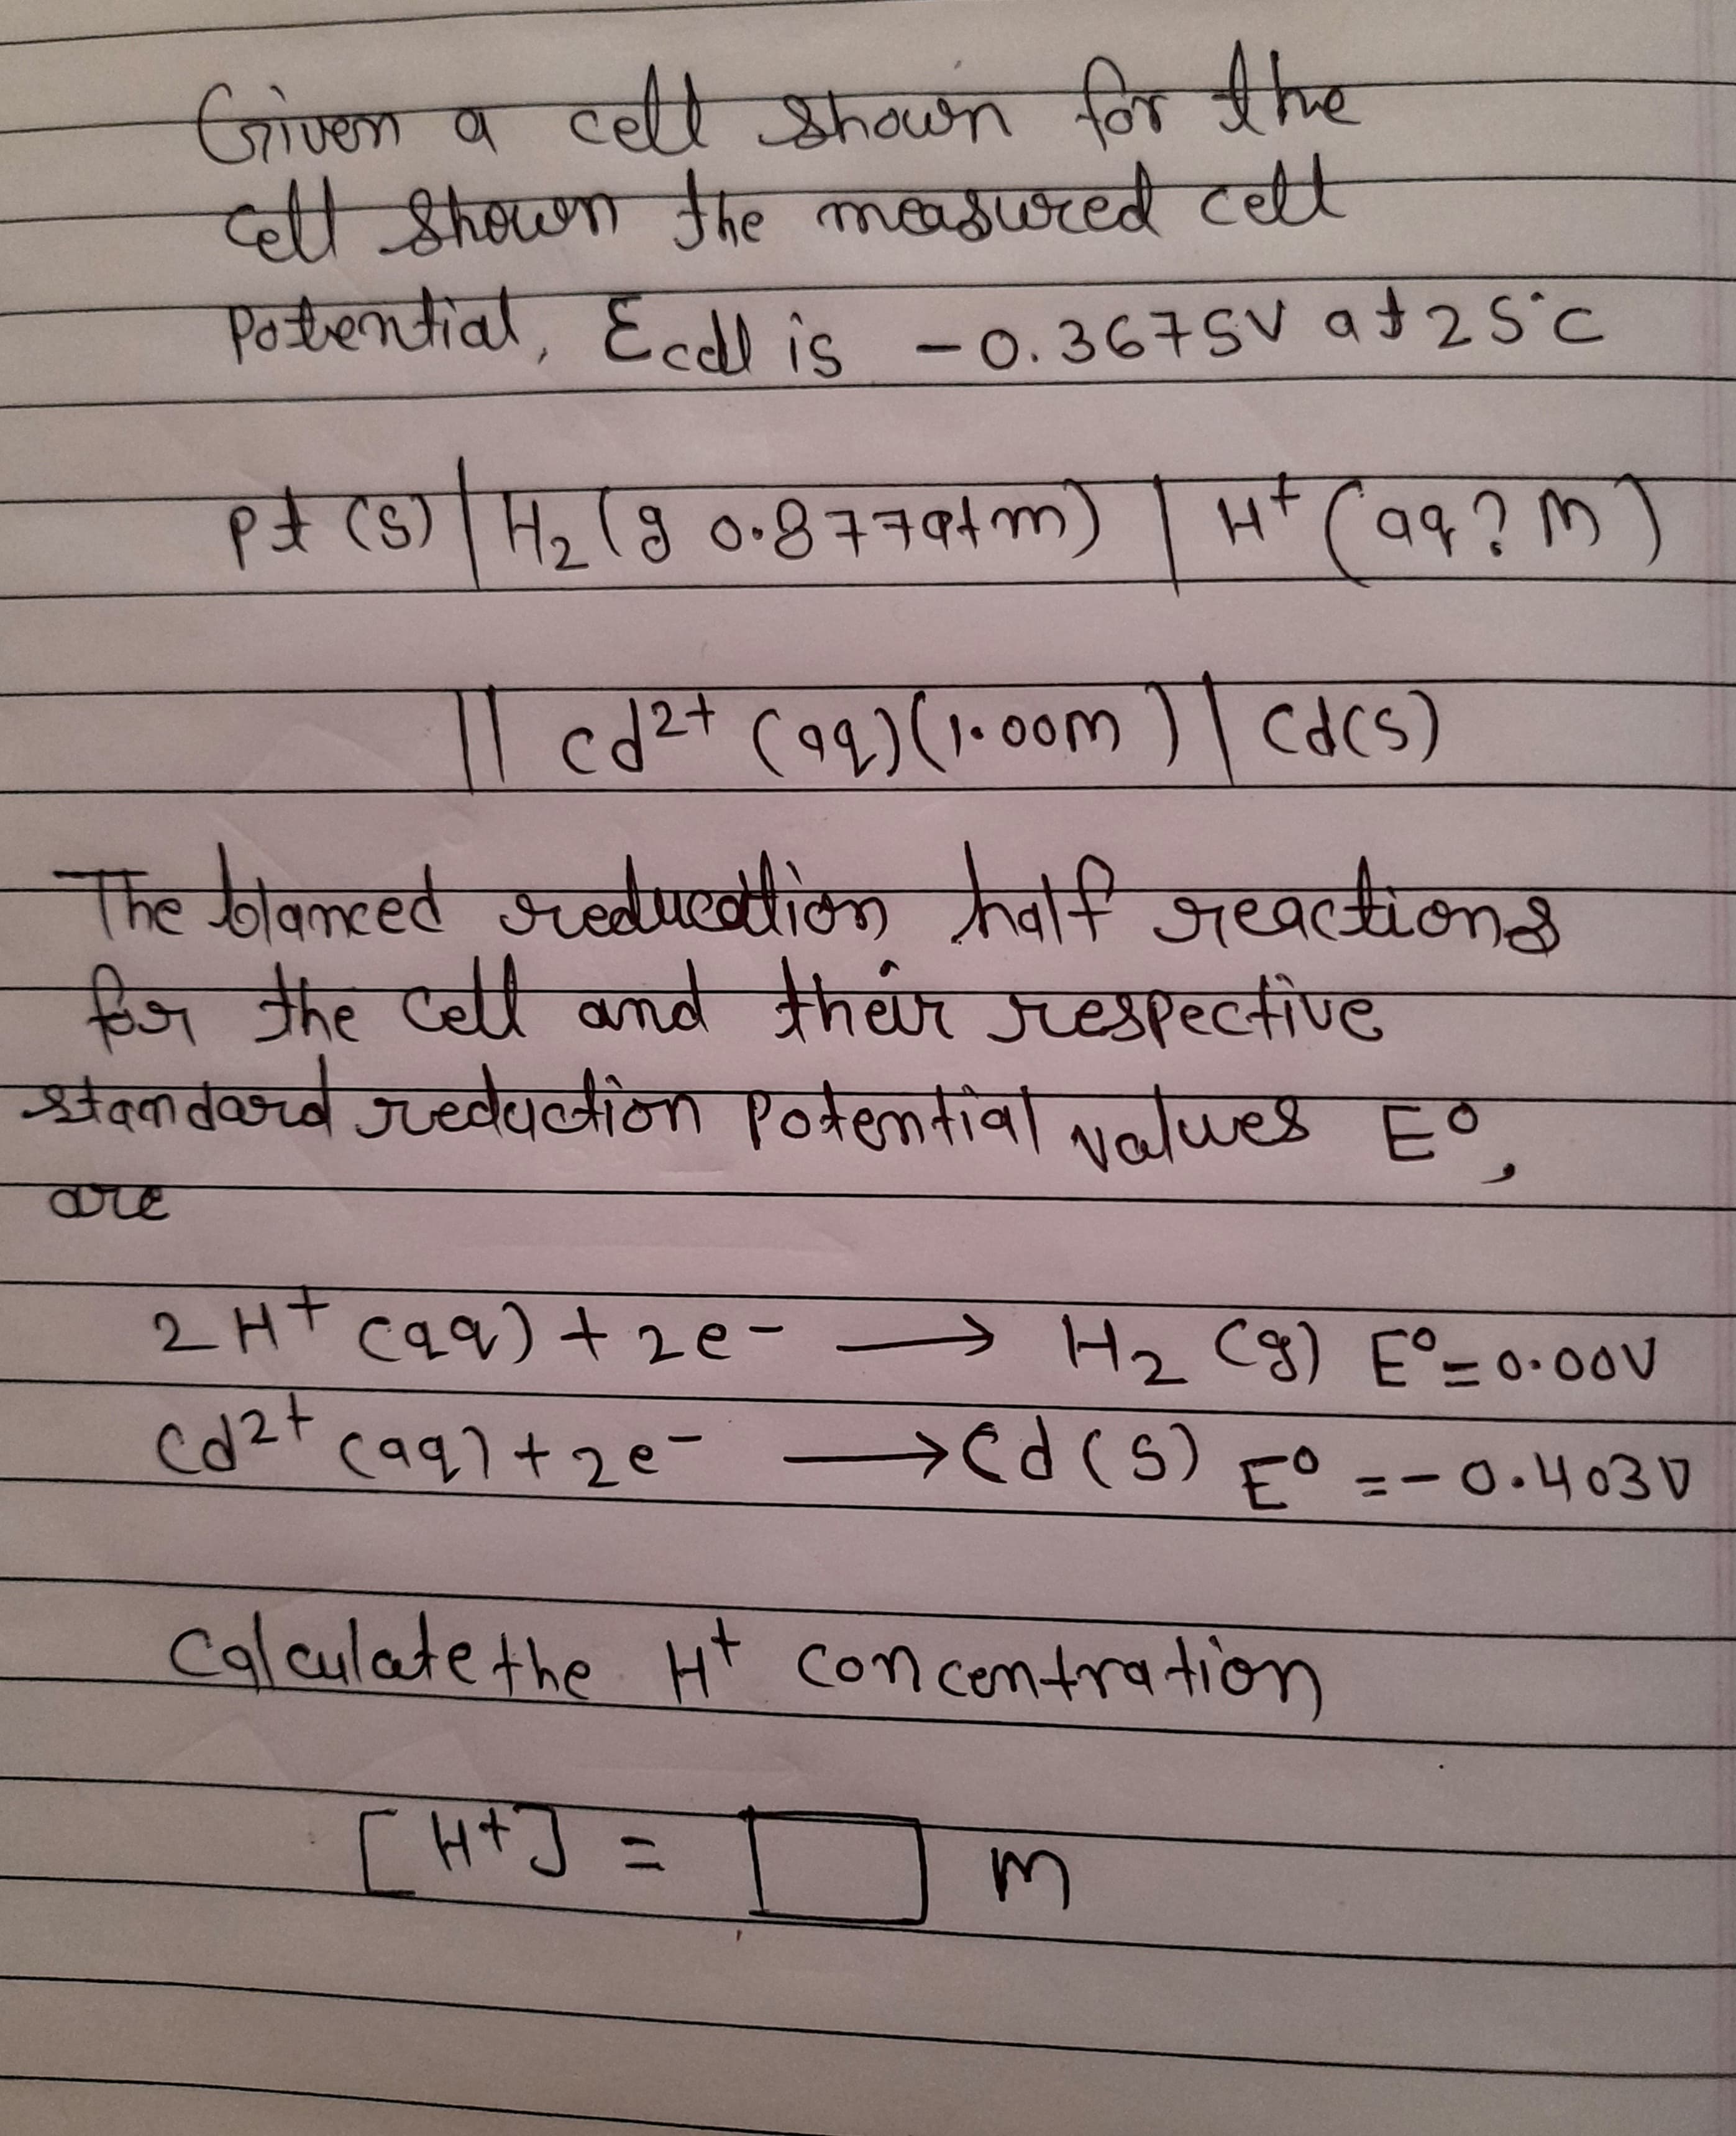 Given a cell shown for the
cell shown the measured cell
potential, Ecell is -0.3675V at 25°C
Pt (s) | H₂ (g 0.877atm) | H⁺ (aq ? M)
|| cd²⁺ (aq) (1.00m) | Cd(s)
The blanced reducation half reactions
for the cell and their respective
standard reduction potential values E⁰,
are
2H⁺ (aq) + 2e⁻ → H₂ (g) E⁰=0.00V
Cd²⁺ (aq) + 2e⁻ → Cd (s) E⁰ =-0.403V
Calculate the H⁺ concentration
[H⁺] = □ m